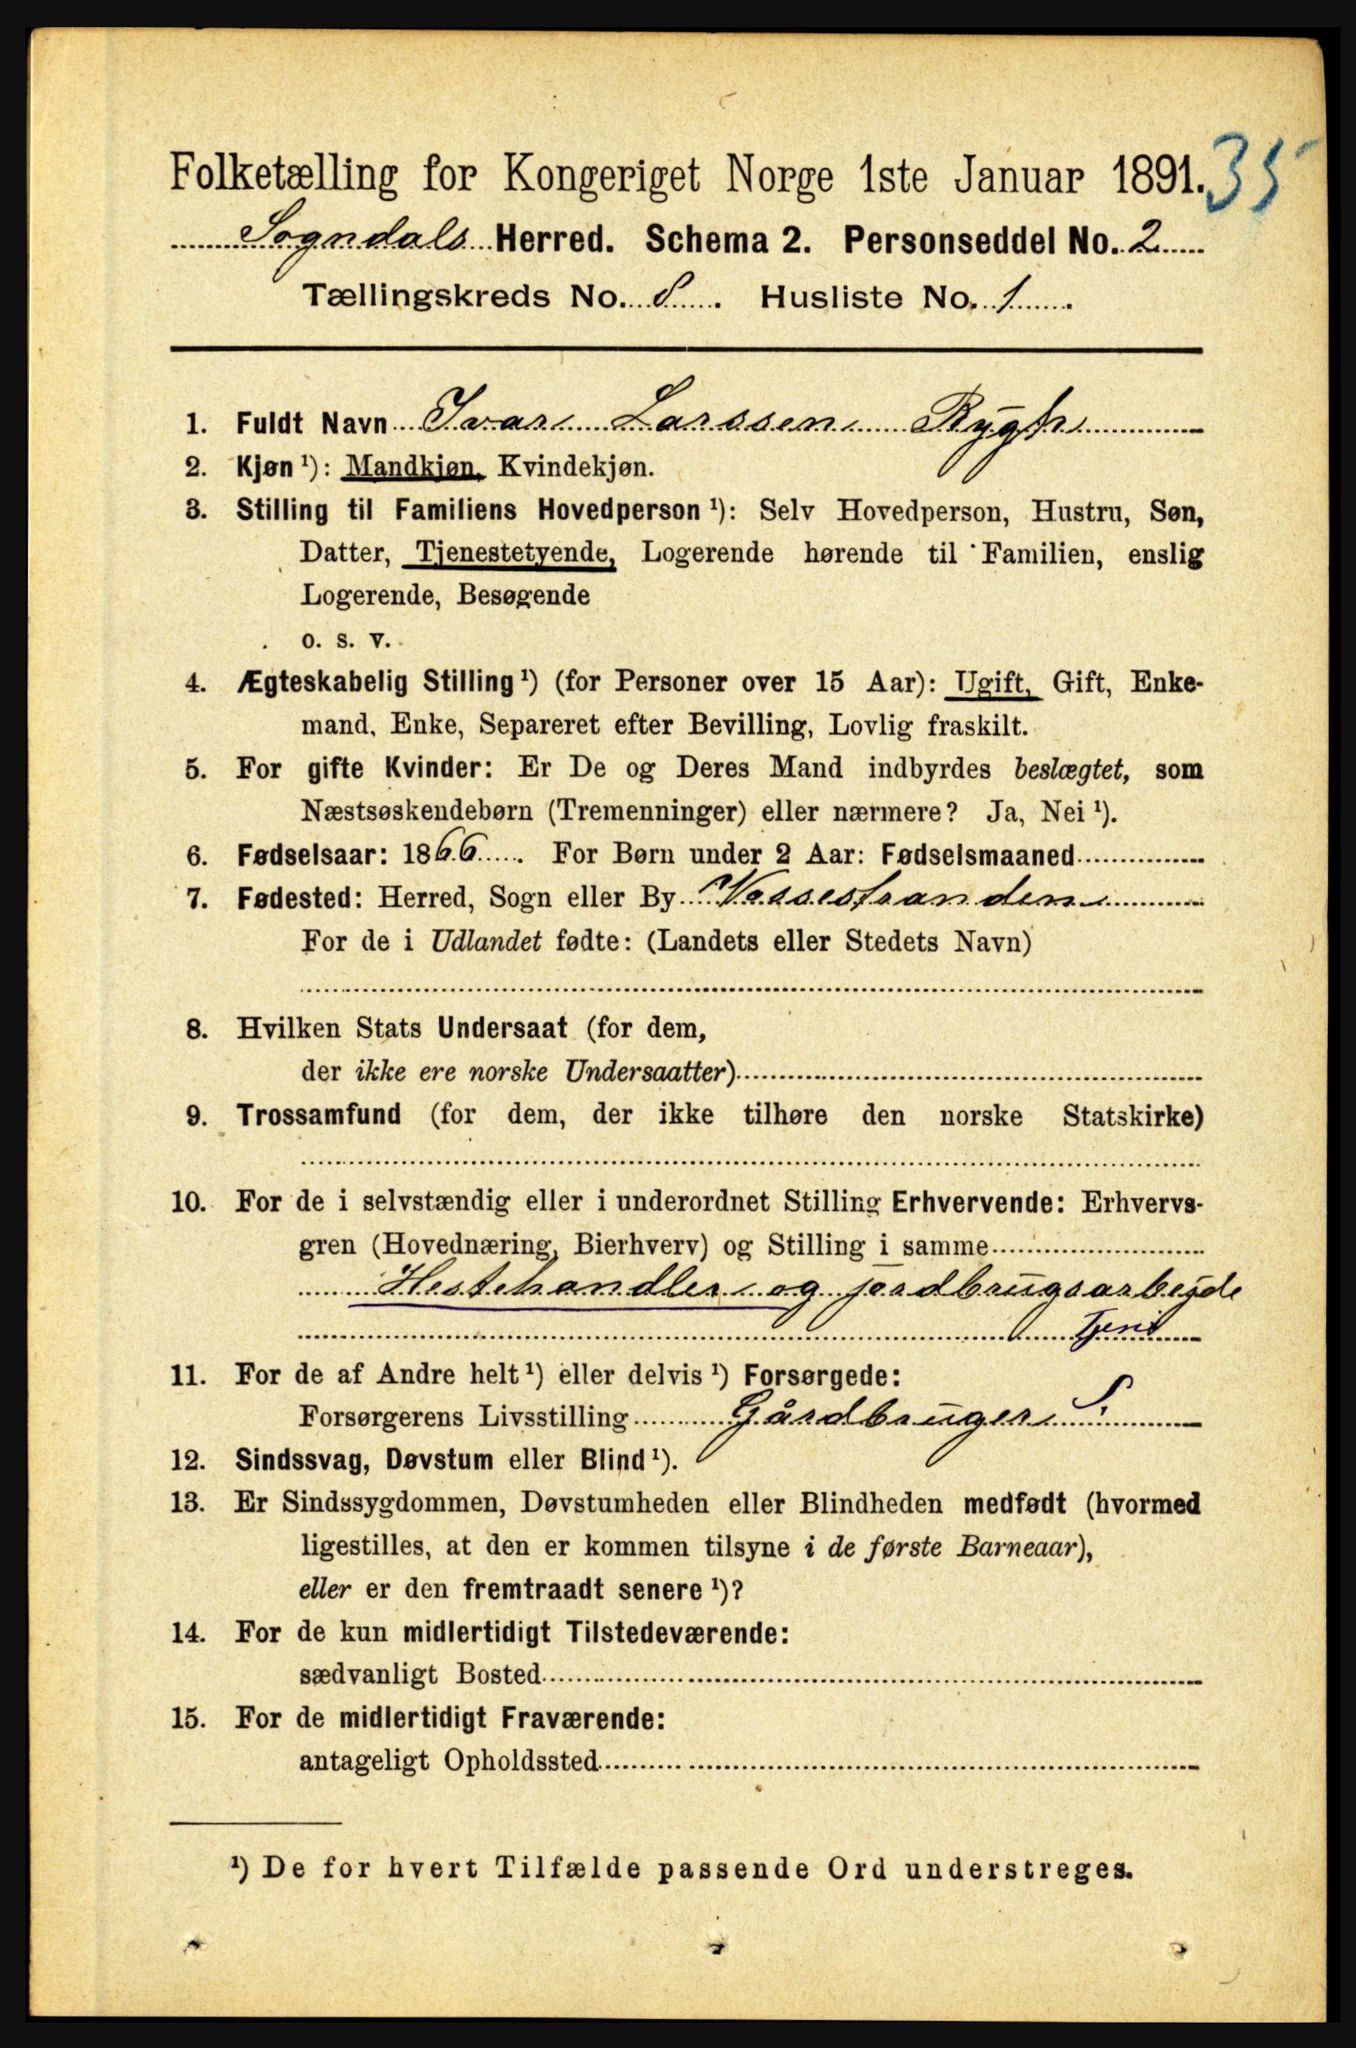 Folketælling for Kongeriget Norge 1ste Januar 1891. 35
Sogndals Herred. Schema 2. Personseddel No. 2
Tællingskreds No. 8. Husliste No. 1.
1. Fuldt Navn Ivar Larssen Rygh
2. Kjøn ¹): Mandkjøn, Kvindekjøn.
3. Stilling til Familiens Hovedperson ¹): Selv Hovedperson, Hustru, Søn,
Datter, Tjenestetyende, Logerende hørende til Familien, enslig
Logerende, Besøgende
o. s. v.
4. Ægteskabelig Stilling ¹) (for Personer over 15 Aar): Ugift, Gift, Enke-
mand, Enke, Separeret efter Bevilling, Lovlig fraskilt.
5. For gifte Kvinder: Er De og Deres Mand indbyrdes beslægtet, som
Næstsøskendebørn (Tremenninger) eller nærmere? Ja, Nei ¹).
6. Fødselsaar: 1866. For Børn under 2 Aar: Fødselsmaaned
7. Fødested: Herred, Sogn eller By Vossestranden
For de i Udlandet fødte: (Landets eller Stedets Navn)
8. Hvilken Stats Undersaat (for dem,
der ikke ere norske Undersaatter)
9. Trossamfund (for dem, der ikke tilhøre den norske Statskirke)
10. For de i selvstændig eller i underordnet Stilling Erhvervende: Erhvervs-
gren (Hovednæring, Bierhverv) og Stilling i samme
Hestehandler og jordbrugsarbejde
Tjent
11. For de af Andre helt ¹) eller delvis ¹) Forsørgede:
Forsørgerens Livsstilling Gårdbruger S.
12. Sindssvag, Døvstum eller Blind ¹).
13. Er Sindssygdommen, Døvstumheden eller Blindheden medfødt (hvormed
ligestilles, at den er kommen tilsyne i de første Barneaar),
eller er den fremtraadt senere ¹)?
14. For de kun midlertidigt Tilstedeværende:
sædvanligt Bosted
15. For de midlertidigt Fraværende:
antageligt Opholdssted
¹) De for hvert Tilfælde passende Ord understreges.